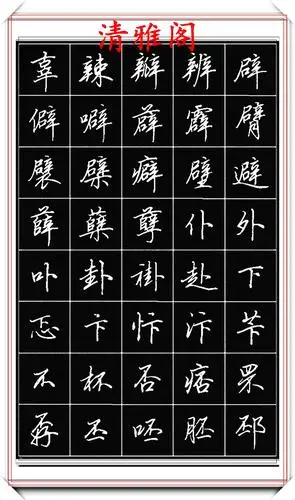 清雅阁
辜辣瓣辨辟
僻噼薜霹臂
襞檗癖壁避
薛蘖孽仆外
卟卦褂赴下
忑卞忭汴苄
不杯否痞罘
孬丕呸胚邳